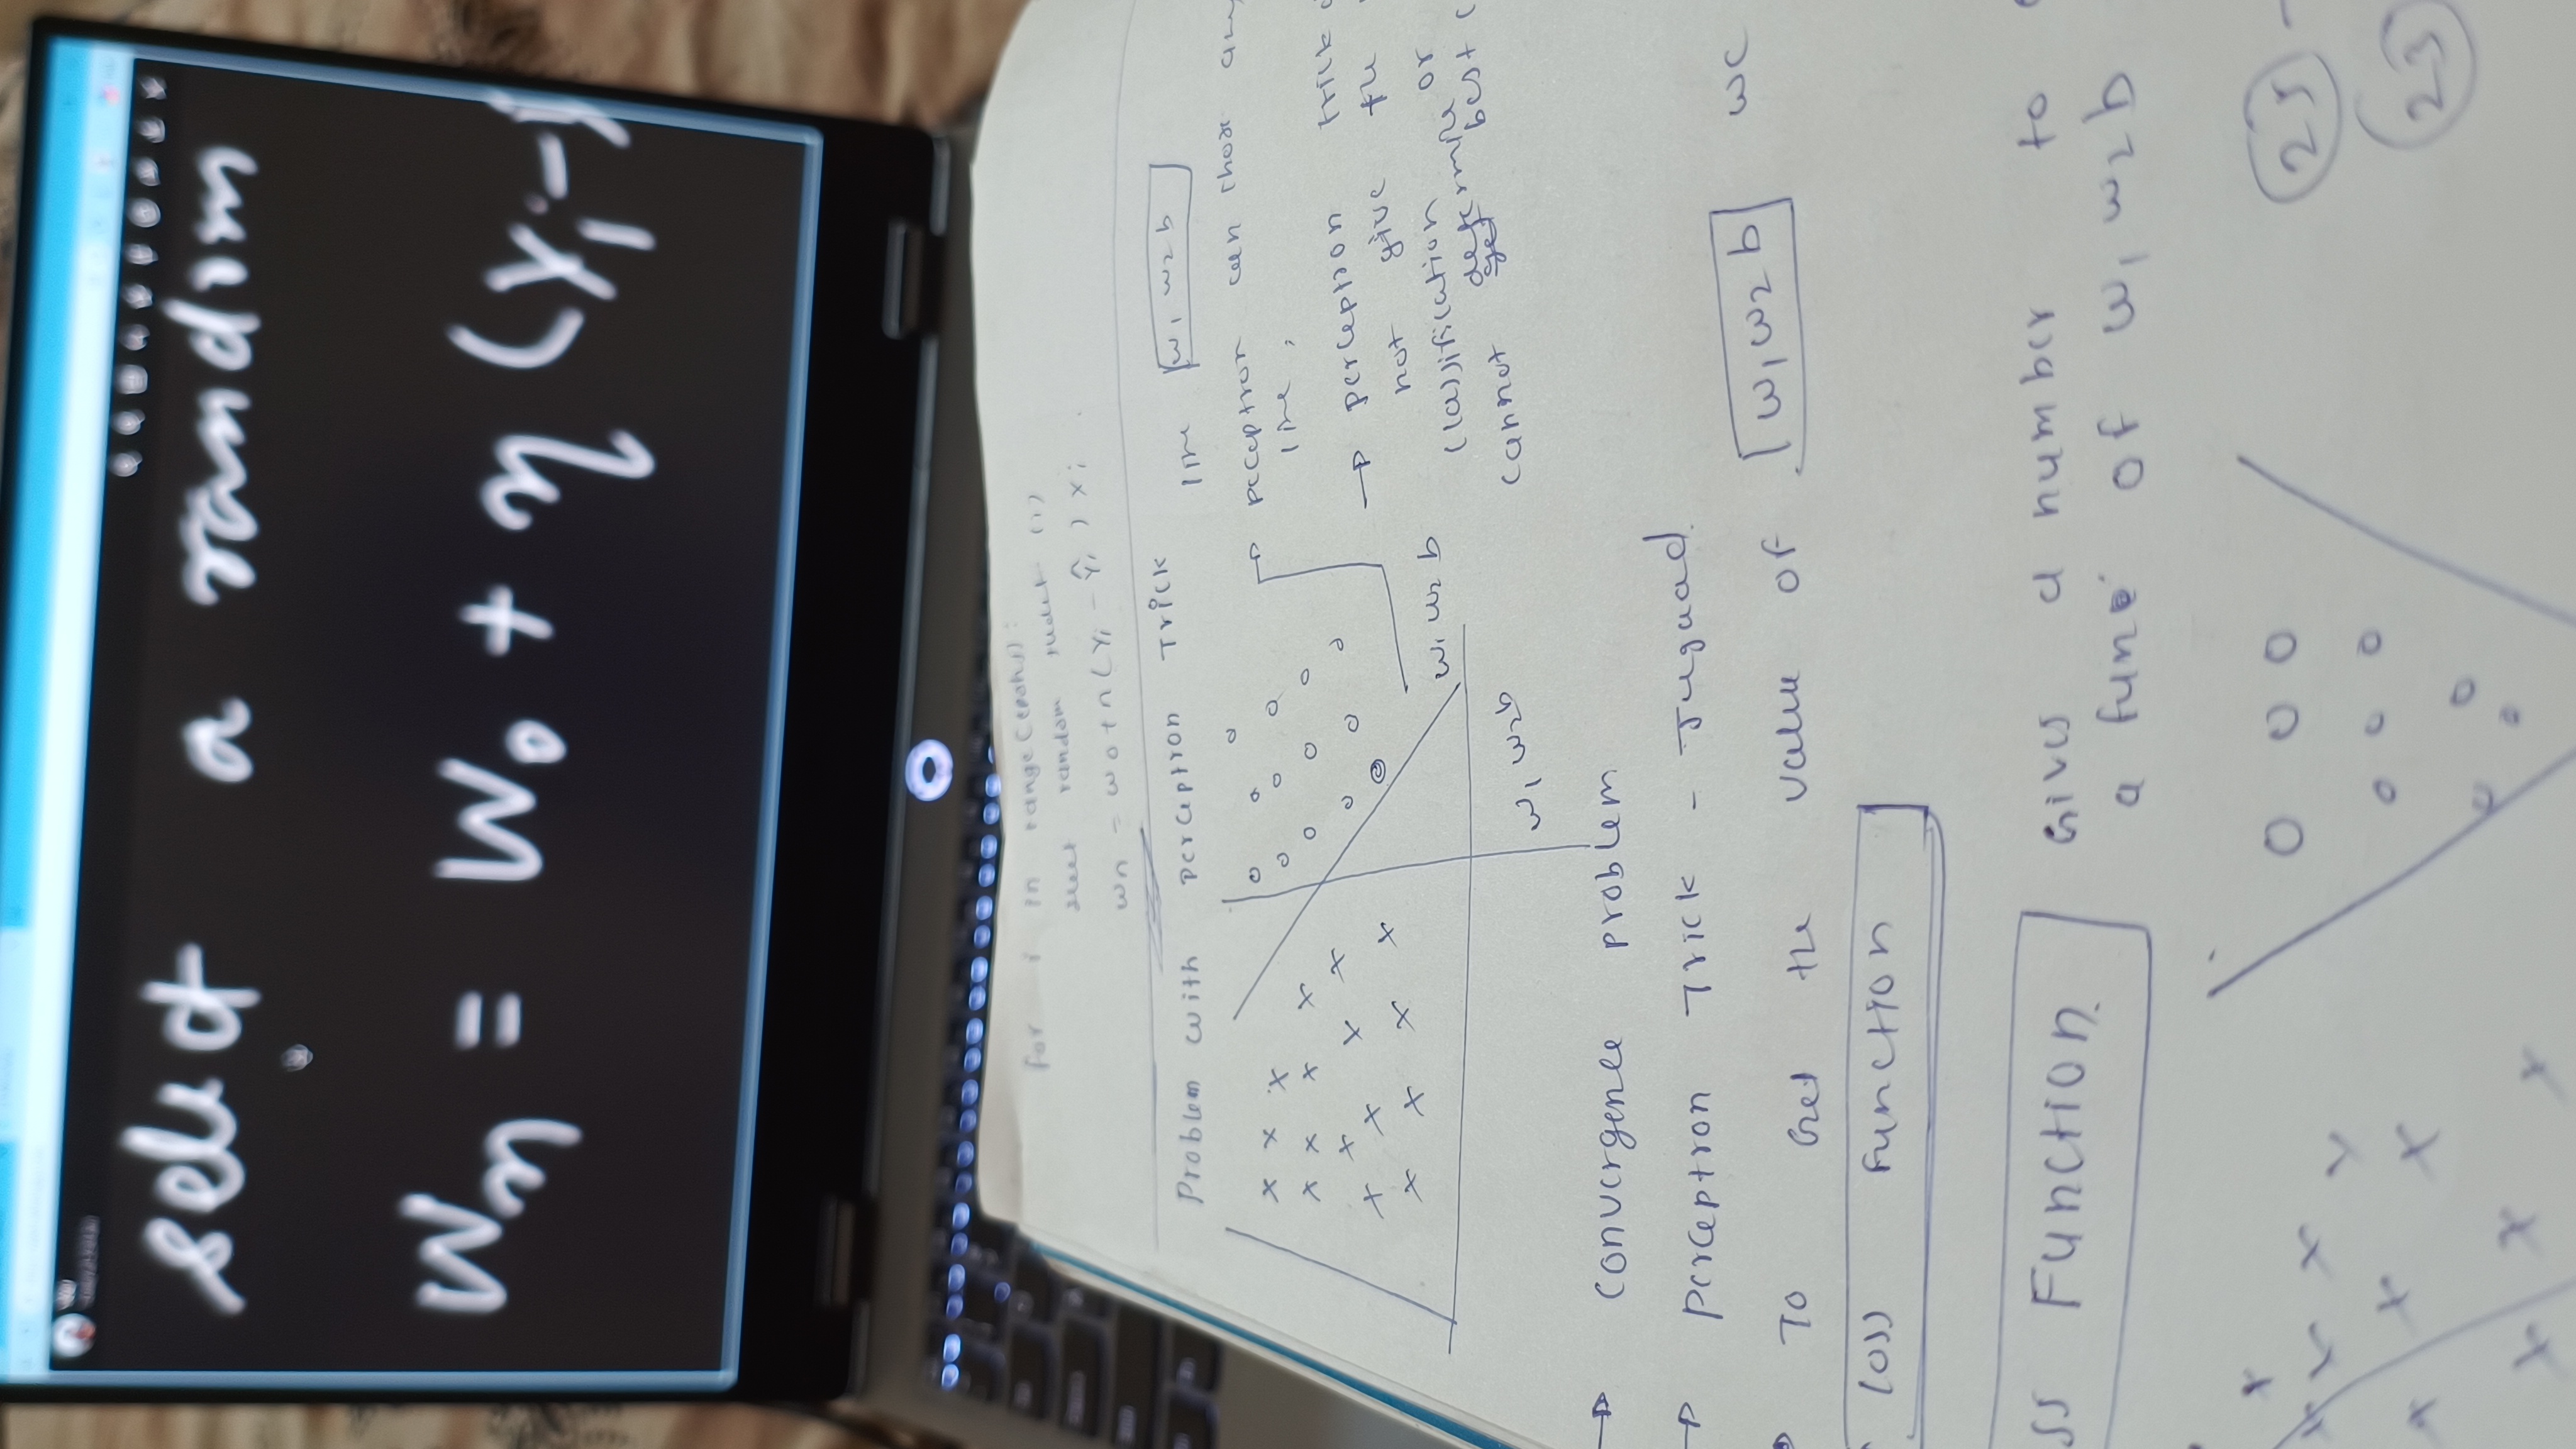 select a random
Wn = Wo + η (Yi - Ŷ
for i in range(epochs):
select random student (i)
wn = wo + n(Yi - Ŷi) xi
Problem with perceptron Trick line w1 w2 b
perceptron can chose any
line,
perceptron trick
not give the
classification or
determine
get best
cannot
w1 w2 b
w1 w2 b
→ convergence problem
→ perceptron Trick - Jungaad.
To Get the value of w1 w2 b we
loss function
ss Function Gives a number to
a func of w1 w2 b
25 -
23